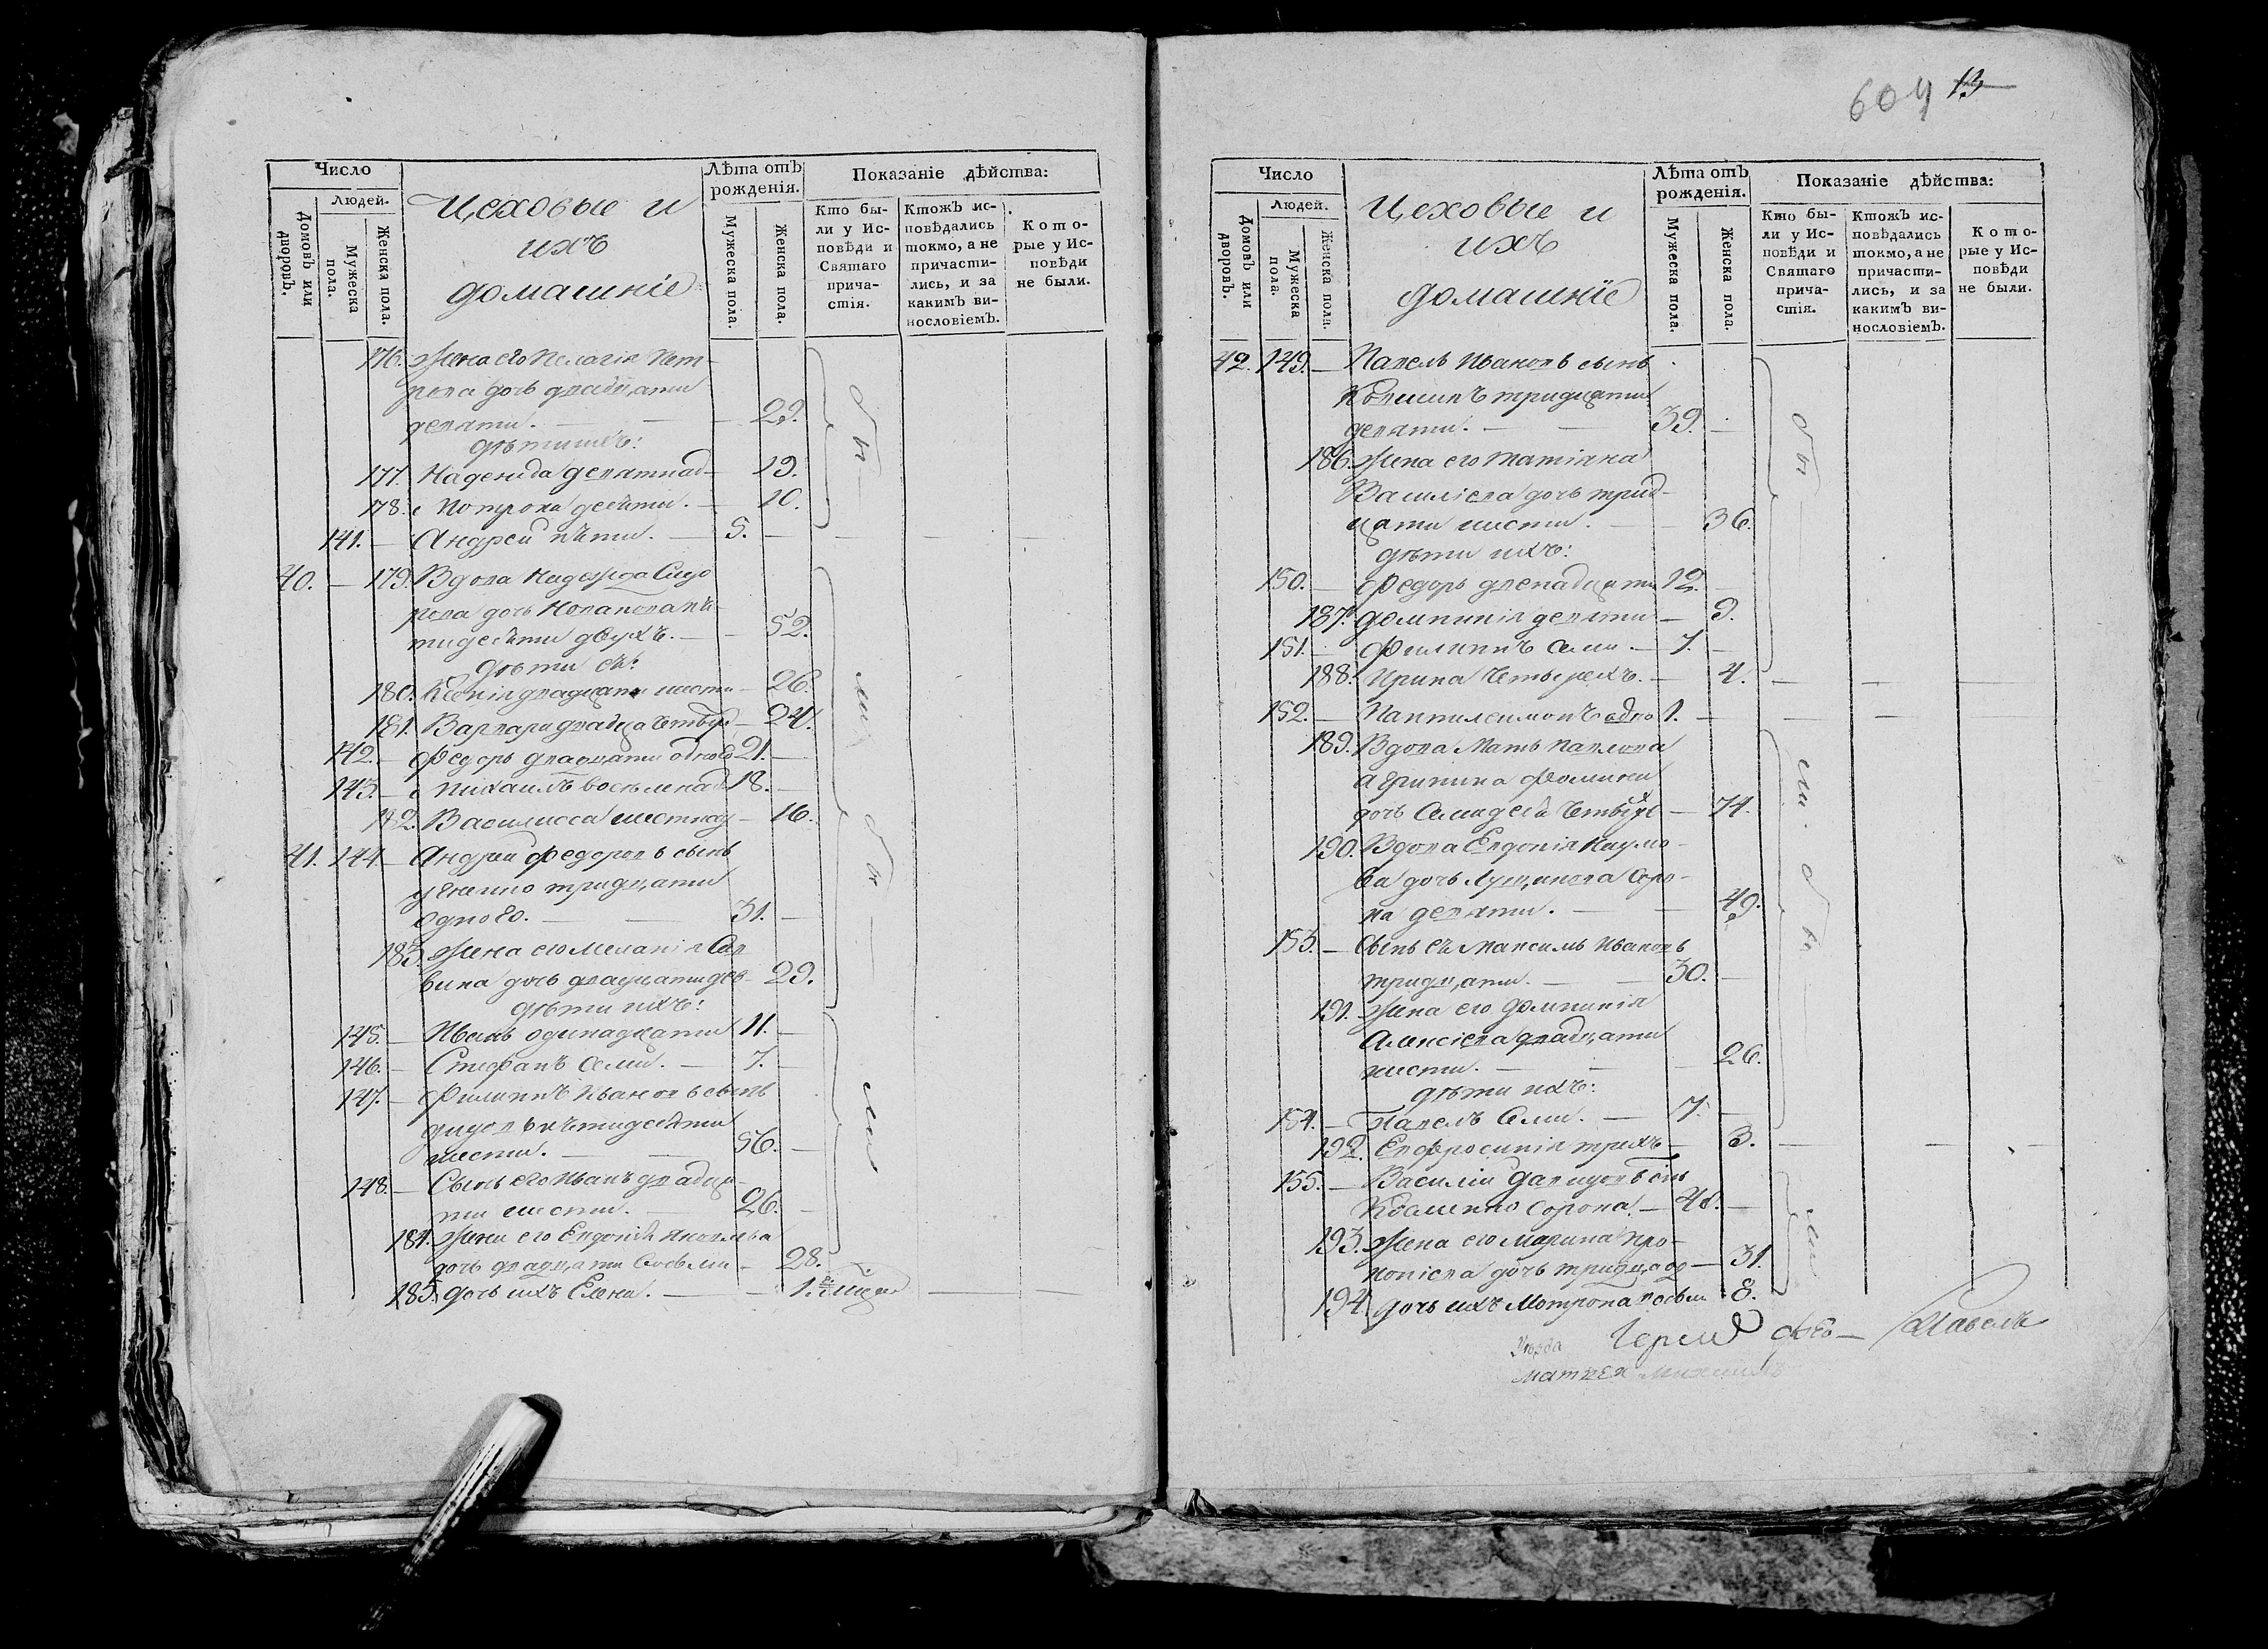 Число
Людей.
Домовъ или дворовъ.
Мужеска пола.
Женска пола.
Цеховые и
ихъ
домашніе
Лѣта отъ рожденія.
Мужеска пола.
Женска пола.
Показаніе дѣйства:
Кто бы-
ли у Ис-
повѣди и
Святаго
прича-
стія.
Ктожъ ис-
повѣдались
токмо, а не
причасти-
лись, и за
какимъ ви-
нословіемъ.
Кото-
рые у Ис-
повѣди
не были.
176. Жена его Пелагія Пет-
рова дочь двадцати
девяти. — 29.
дѣти ихъ:
177. Надежда девятнад- 19.
178. Мотрона десяти. — 10.
141. — Андрей пяти. — 5. —
40. — 179. Вдова Надежда Сидо
рова дочь
тидесяти двухъ. — 52.
Дѣти еѣ:
180. Ксенія двадцати шести — 26.
181. Варвара двадца четыр — 24.
142. — Федоръ двадцати одного 21. —
143. — Михаилъ восемнад 18. —
182. Василисса шестнад — 16.
41. 144. — Андрей Федоровъ сынъ
тридцати
одного. — 31. —
183. Жена его Меланія Сав
вина дочь двадцати дев — 29.
дѣти ихъ:
145. — Иванъ одинадцати 11. —
146. — Стефанъ семи. — 7. —
147. — Филиппъ Ивановъ сынъ
пятидесяти
шести. — 56. —
148. — Сынъ его Иванъ двадца-
ти шести. — 26. —
184. Жена его Евдокія Яковлева
дочь двадцати восьми — 28.
185. Дочь ихъ Елена. — 1.
бы
ли
бы
ли
604 13
Число
Людей.
Домовъ или дворовъ.
Мужеска пола.
Женска пола.
Цеховые и
ихъ
домашніе
Лѣта отъ рожденія.
Мужеска пола.
Женска пола.
Показаніе дѣйства:
Кто бы-
ли у Ис-
повѣди и
Святаго
прича-
стія.
Ктожъ ис-
повѣдались
токмо, а не
причасти-
лись, и за
какимъ ви-
нословіемъ.
Кото-
рые у Ис-
повѣди
не были.
42. 149. — Павелъ Ивановъ сынъ
тридцати
девяти. — 39. —
186. Жена его Татіяна
Василіева дочь трид-
цати шести. — 36.
дѣти ихъ:
150. — Федоръ двенадцати 12. —
187. Домникія девяти — 9.
151. — Филиппъ семи — 7. —
188. Ирина четырехъ. — 4.
152. — Пантилеимонъ одно 1. —
189. Вдова Мать Павлова
Агрипина Фомина
дочь семидеся четырх — 74.
190. Вдова Евдокія Наумо-
ва дочь соро-
ка девяти. — 49.
153. — Сынъ еѣ Максимъ Ивановъ
тридцати. — 30. —
191. Жена его Домникія
Алексіева двадцати
шести. — 26.
дѣти ихъ:
154. — Павелъ семи. — 7. —
192. Евфросинія трихъ — 3.
155. — Василій Давидовъ снъ
Квашенко сорока — 40. —
193. Жена его Марина Про-
копіева дочь тридца од — 31.
194. Дочь ихъ Мотрона восьм 8.
бы
ли
бы
ли
Уезда
Павелъ
Матвея